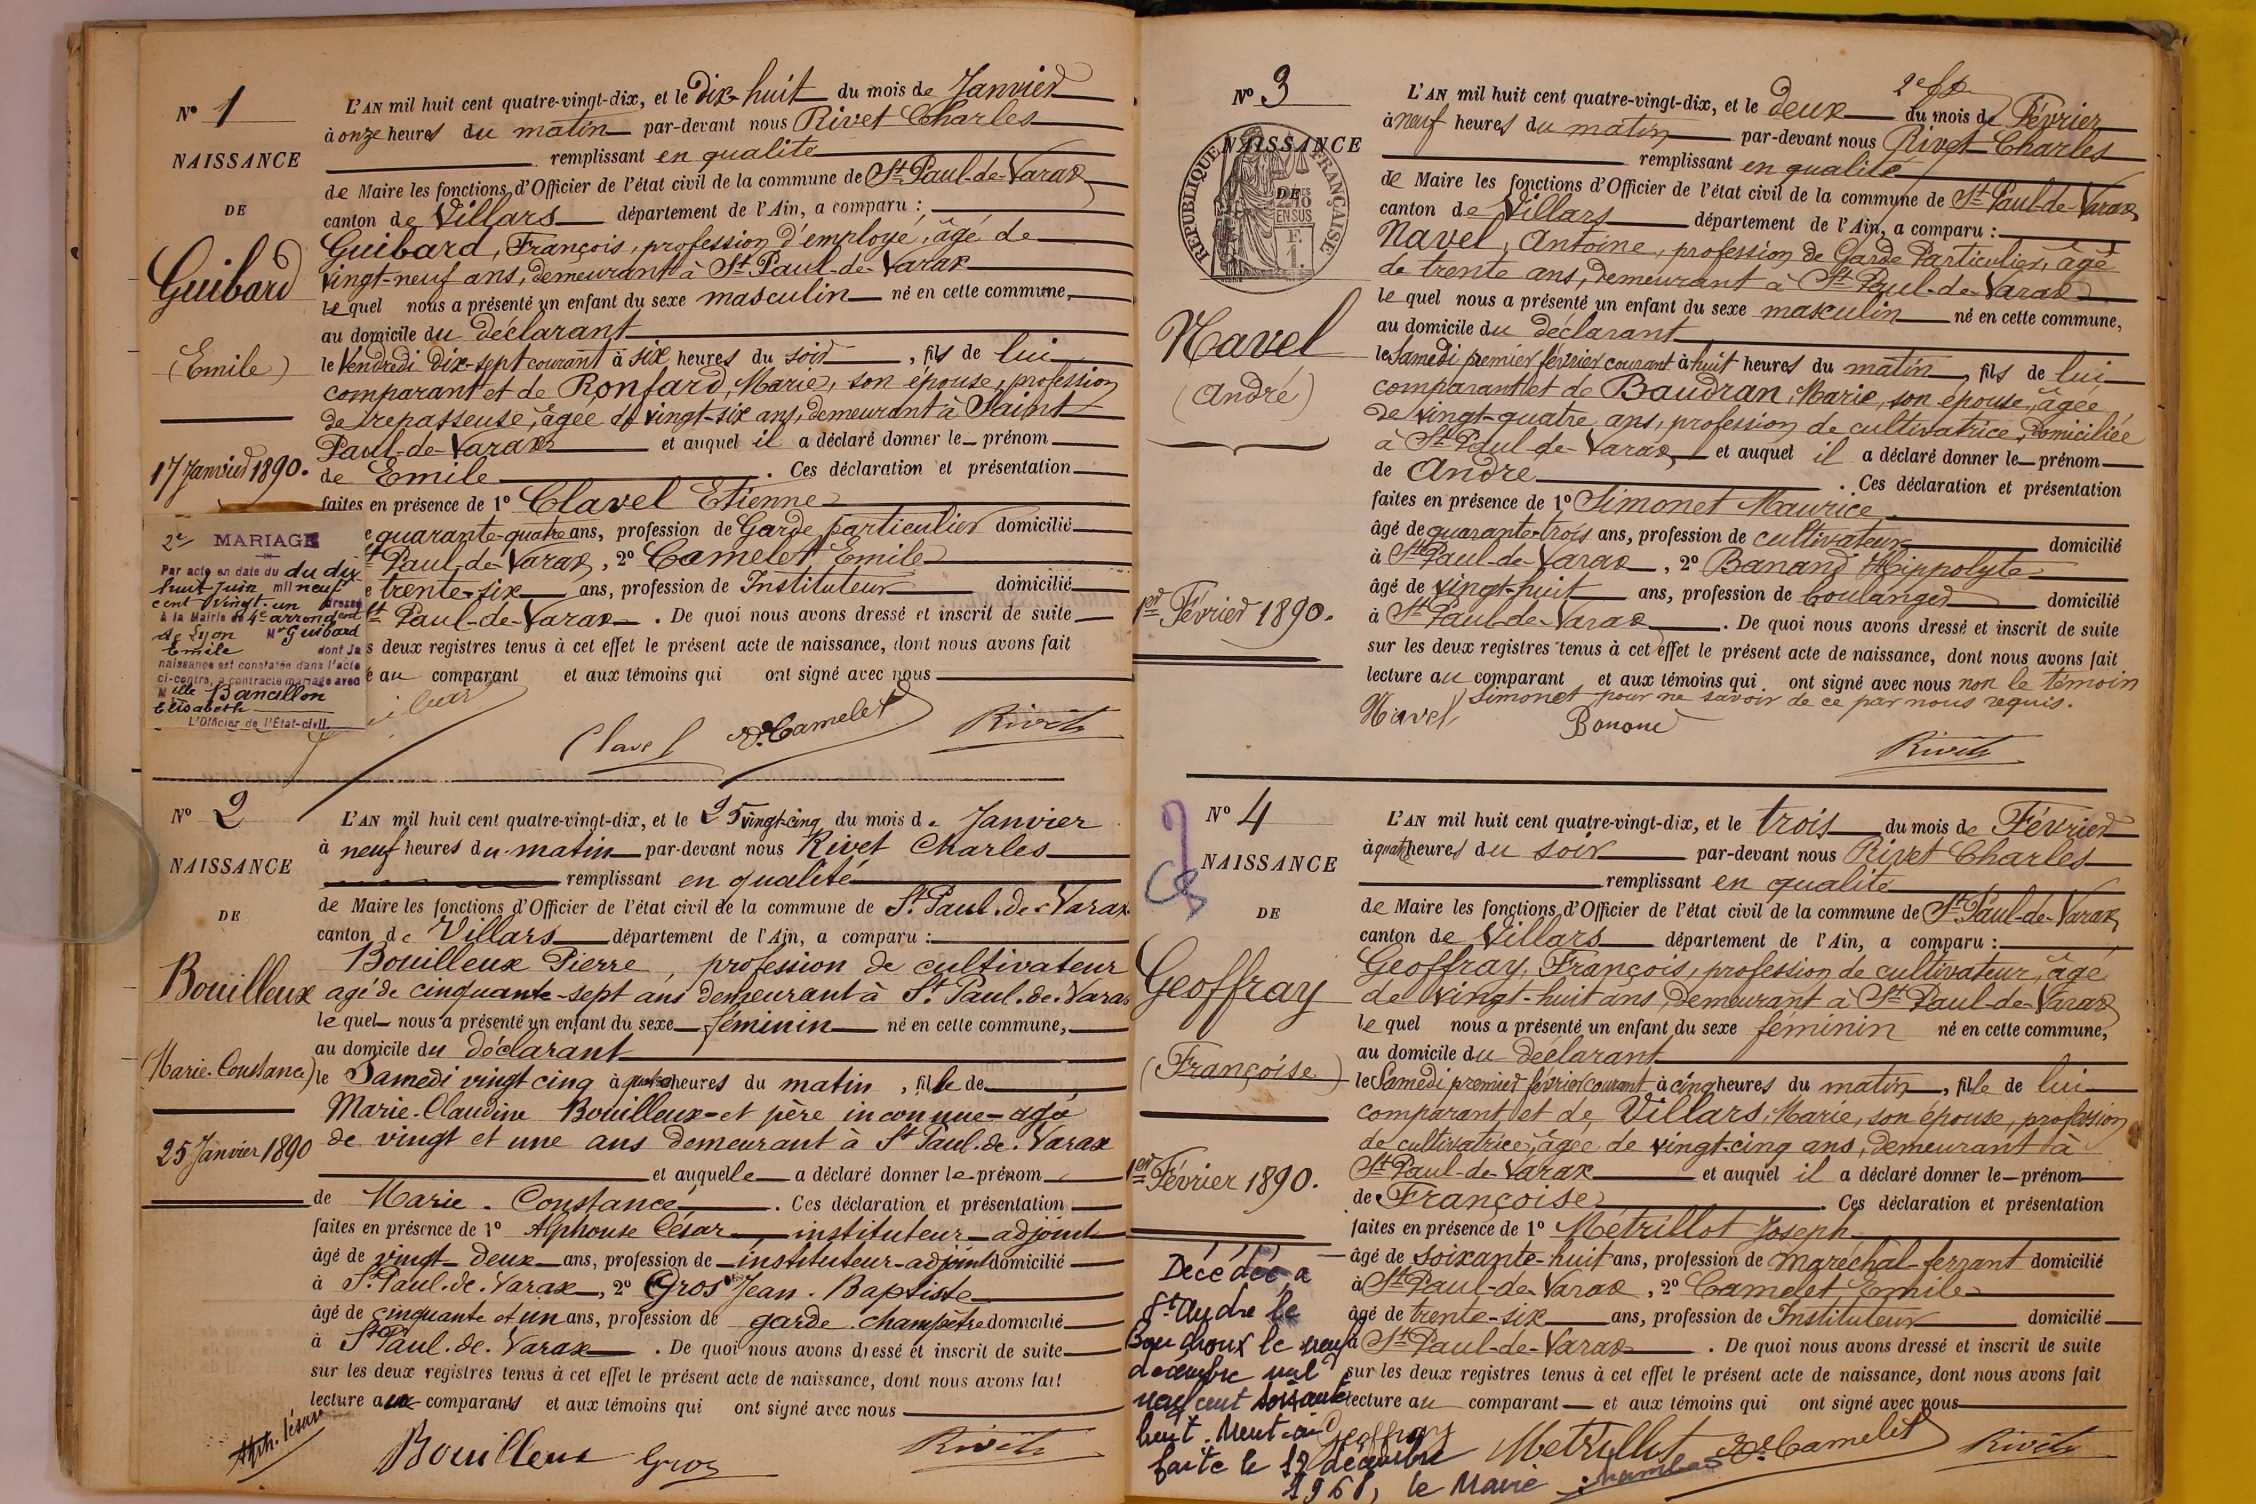 N° 1
NAISSANCE
DE
Guibard
(Emile)
17 Janvier 1890.
2e/ MARIAGE
Par acte en date du du dix
huit Juin mil neuf
cent vingt-un dressé
à la Mairie du 4e arrondent
de Lyon Mr Guibard
Emile dont la
naissance est constatée dans l'acte
ci-contre, a contracté mariage avec
Mlle Bancillon
Elisabeth
L'Officier de l'État-civil
L'AN mil huit cent quatre-vingt-dix, et le dix-huit du mois de Janvier
à onze heures du matin par-devant nous Rivet Charles
remplissant en qualité
de Maire les fonctions d'Officier de l'état civil de la commune de St Paul-de-Varax
canton de Villars département de l'Ain, a comparu :
Guibard, François, profession d'employé, âgé de
vingt-neuf ans, demeurant à St Paul-de-Varax
le quel nous a présenté un enfant du sexe masculin né en cette commune,
au domicile du déclarant
le Vendredi dix-sept courant à six heures du soir, fils de lui
comparant et de Ronfard, Marie, son épouse, profession
de repasseuse, âgée de vingt-six ans, demeurant à Saint
Paul-de-Varax et auquel il a déclaré donner le prénom
de Emile. Ces déclaration et présentation
faites en présence de 1° Clavel Etienne
e quarante-quatre ans, profession de Garde particulier domicilié
St Paul-de-Varax, 2° Camelet Emile
e trente-six ans, profession de Instituteur domicilié
St Paul-de-Varax. De quoi nous avons dressé et inscrit de suite
s deux registres tenus à cet effet le présent acte de naissance, dont nous avons fait
e au comparant et aux témoins qui ont signé avec nous
Clavel E. Camelet Rivet
N° 2
NAISSANCE
DE
Bouilleux
(Marie-Constance)
25 Janvier 1890
L'AN mil huit cent quatre-vingt-dix, et le 25 vingt-cinq du mois de Janvier
à neuf heures du matin par-devant nous Rivet Charles
remplissant en qualité
de Maire les fonctions d'Officier de l'état civil de la commune de St. Paul.de.Varax
canton de Villars département de l'Ain, a comparu :
Bouilleux Pierre, profession de cultivateur
agé de cinquante-sept ans demeurant à St. Paul.de.Varax
le quel nous a présenté un enfant du sexe féminin né en cette commune,
au domicile du déclarant
le Samedi vingt cinq à quatre heures du matin, fille de
Marie-Claudine Bouilleux et père inconnue agé
de vingt et une ans demeurant à St Paul.de.Varax
et auquelle a déclaré donner le prénom
de Marie. Constance. Ces déclaration et présentation
faites en présence de 1° Alphonse César instituteur adjoint
âgé de vingt-deux ans, profession de instituteur-adjoint domicilié
à St. Paul.de.Varax, 2° Gros Jean. Baptiste
âgé de cinquante et un ans, profession de garde champêtre domicilié
à St Paul.de.Varax. De quoi nous avons dressé et inscrit de suite
sur les deux registres tenus à cet effet le présent acte de naissance, dont nous avons fait
lecture aux comparants et aux témoins qui ont signé avec nous
Alph. César Bouilleux Gros Rivet
2e f
N° 3
NAISSANCE
DE
RÉPUBLIQUE FRANÇAISE
EN SUS
Navel
(André)
1er Février 1890.
L'AN mil huit cent quatre-vingt-dix, et le deux du mois de Février
à neuf heures du matin par-devant nous Rivet Charles
remplissant en qualité
de Maire les fonctions d'Officier de l'état civil de la commune de St Paul-de-Varax
canton de Villars département de l'Ain, a comparu :
Navel, Antoine, profession de Garde Particulier, âgé
de trente ans, demeurant à St Paul-de-Varax
le quel nous a présenté un enfant du sexe masculin né en cette commune,
au domicile du déclarant
le Samedi premier février courant à huit heures du matin, fils de lui
comparant et de Baudran, Marie, son épouse, âgée
de vingt-quatre ans, profession de cultivatrice, domiciliée
à St Paul-de-Varax et auquel il a déclaré donner le prénom
de André. Ces déclaration et présentation
faites en présence de 1° Simonet Maurice
âgé de quarante-trois ans, profession de cultivateur domicilié
à St Paul-de-Varax, 2° Banand Hippolyte
âgé de vingt-huit ans, profession de boulanger domicilié
à St Paul-de-Varax. De quoi nous avons dressé et inscrit de suite
sur les deux registres tenus à cet effet le présent acte de naissance, dont nous avons fait
lecture au comparant et aux témoins qui ont signé avec nous non le témoin
Simonet pour ne savoir de ce par nous requis.
Navel Rivet
N° 4
NAISSANCE
DE
Geoffray
(Françoise)
1er Février 1890.
Décédée à
St André le
Bouchoux le neuf
décembre mil
neuf cent soixante
huit. Mention
faite le 12 décembre
1968, le Maire
L'AN mil huit cent quatre-vingt-dix, et le trois du mois de Février
à quatre heures du soir par-devant nous Rivet Charles
remplissant en qualité
de Maire les fonctions d'Officier de l'état civil de la commune de St Paul-de-Varax
canton de Villars département de l'Ain, a comparu :
Geoffray, François, profession de cultivateur, âgé
de vingt-huit ans, demeurant à St Paul-de-Varax
le quel nous a présenté un enfant du sexe féminin né en cette commune,
au domicile du déclarant
le Samedi premier février courant à cinq heures du matin, fille de lui
comparant et de Villars, Marie, son épouse, profession
de cultivatrice, âgée de vingt-cinq ans, demeurant à
St Paul-de-Varax et auquel il a déclaré donner le prénom
de Françoise. Ces déclaration et présentation
faites en présence de 1° Métrillot Joseph
âgé de soixante-huit ans, profession de Maréchal-ferrant domicilié
à St Paul-de-Varax, 2° Camelet, Emile
âgé de trente-six ans, profession de Instituteur domicilié
à St Paul-de-Varax. De quoi nous avons dressé et inscrit de suite
sur les deux registres tenus à cet effet le présent acte de naissance, dont nous avons fait
lecture au comparant et aux témoins qui ont signé avec nous
Geoffray Metrillot E. Camelet Rivet